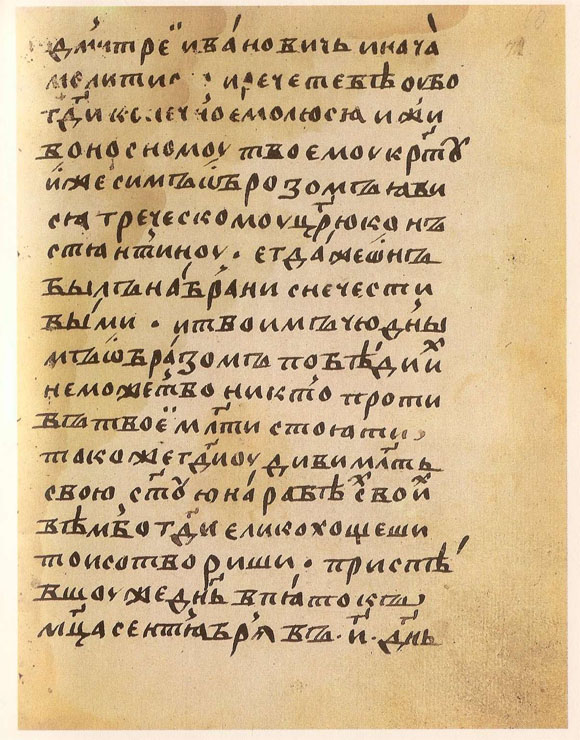 дмитреї ивановичь иnача
молитис . и рече тебѣ оубо
гд҇и кѡлѣчноемолюся и жи
воносномоу твоемоу крⷭ҇тꙋ
иже симъ ѡбразомъ яви
ся греческомоу цр҃ю кон
стянтиноу . егда же ѡнъ
былъ на брани с нечести
выми . и твоимъ чюдны
мъ ѡбразомъ побѣди иⷯ
не можетъ бо никто проти
въ твоеї млⷭ҇ти стояти
тако же гдⷭ҇и оудиви млⷭ҇ть
свою стꙋ҃ю на рабѣⷯ своиⷯ
вѣмъ бо гдⷭ҇и елико хощеши
то и сотвориши . приспѣ
вшоу же днⷭ҇ь в пятокъ
мⷭ҇ца сентября въ . и҃ . дн҃ь